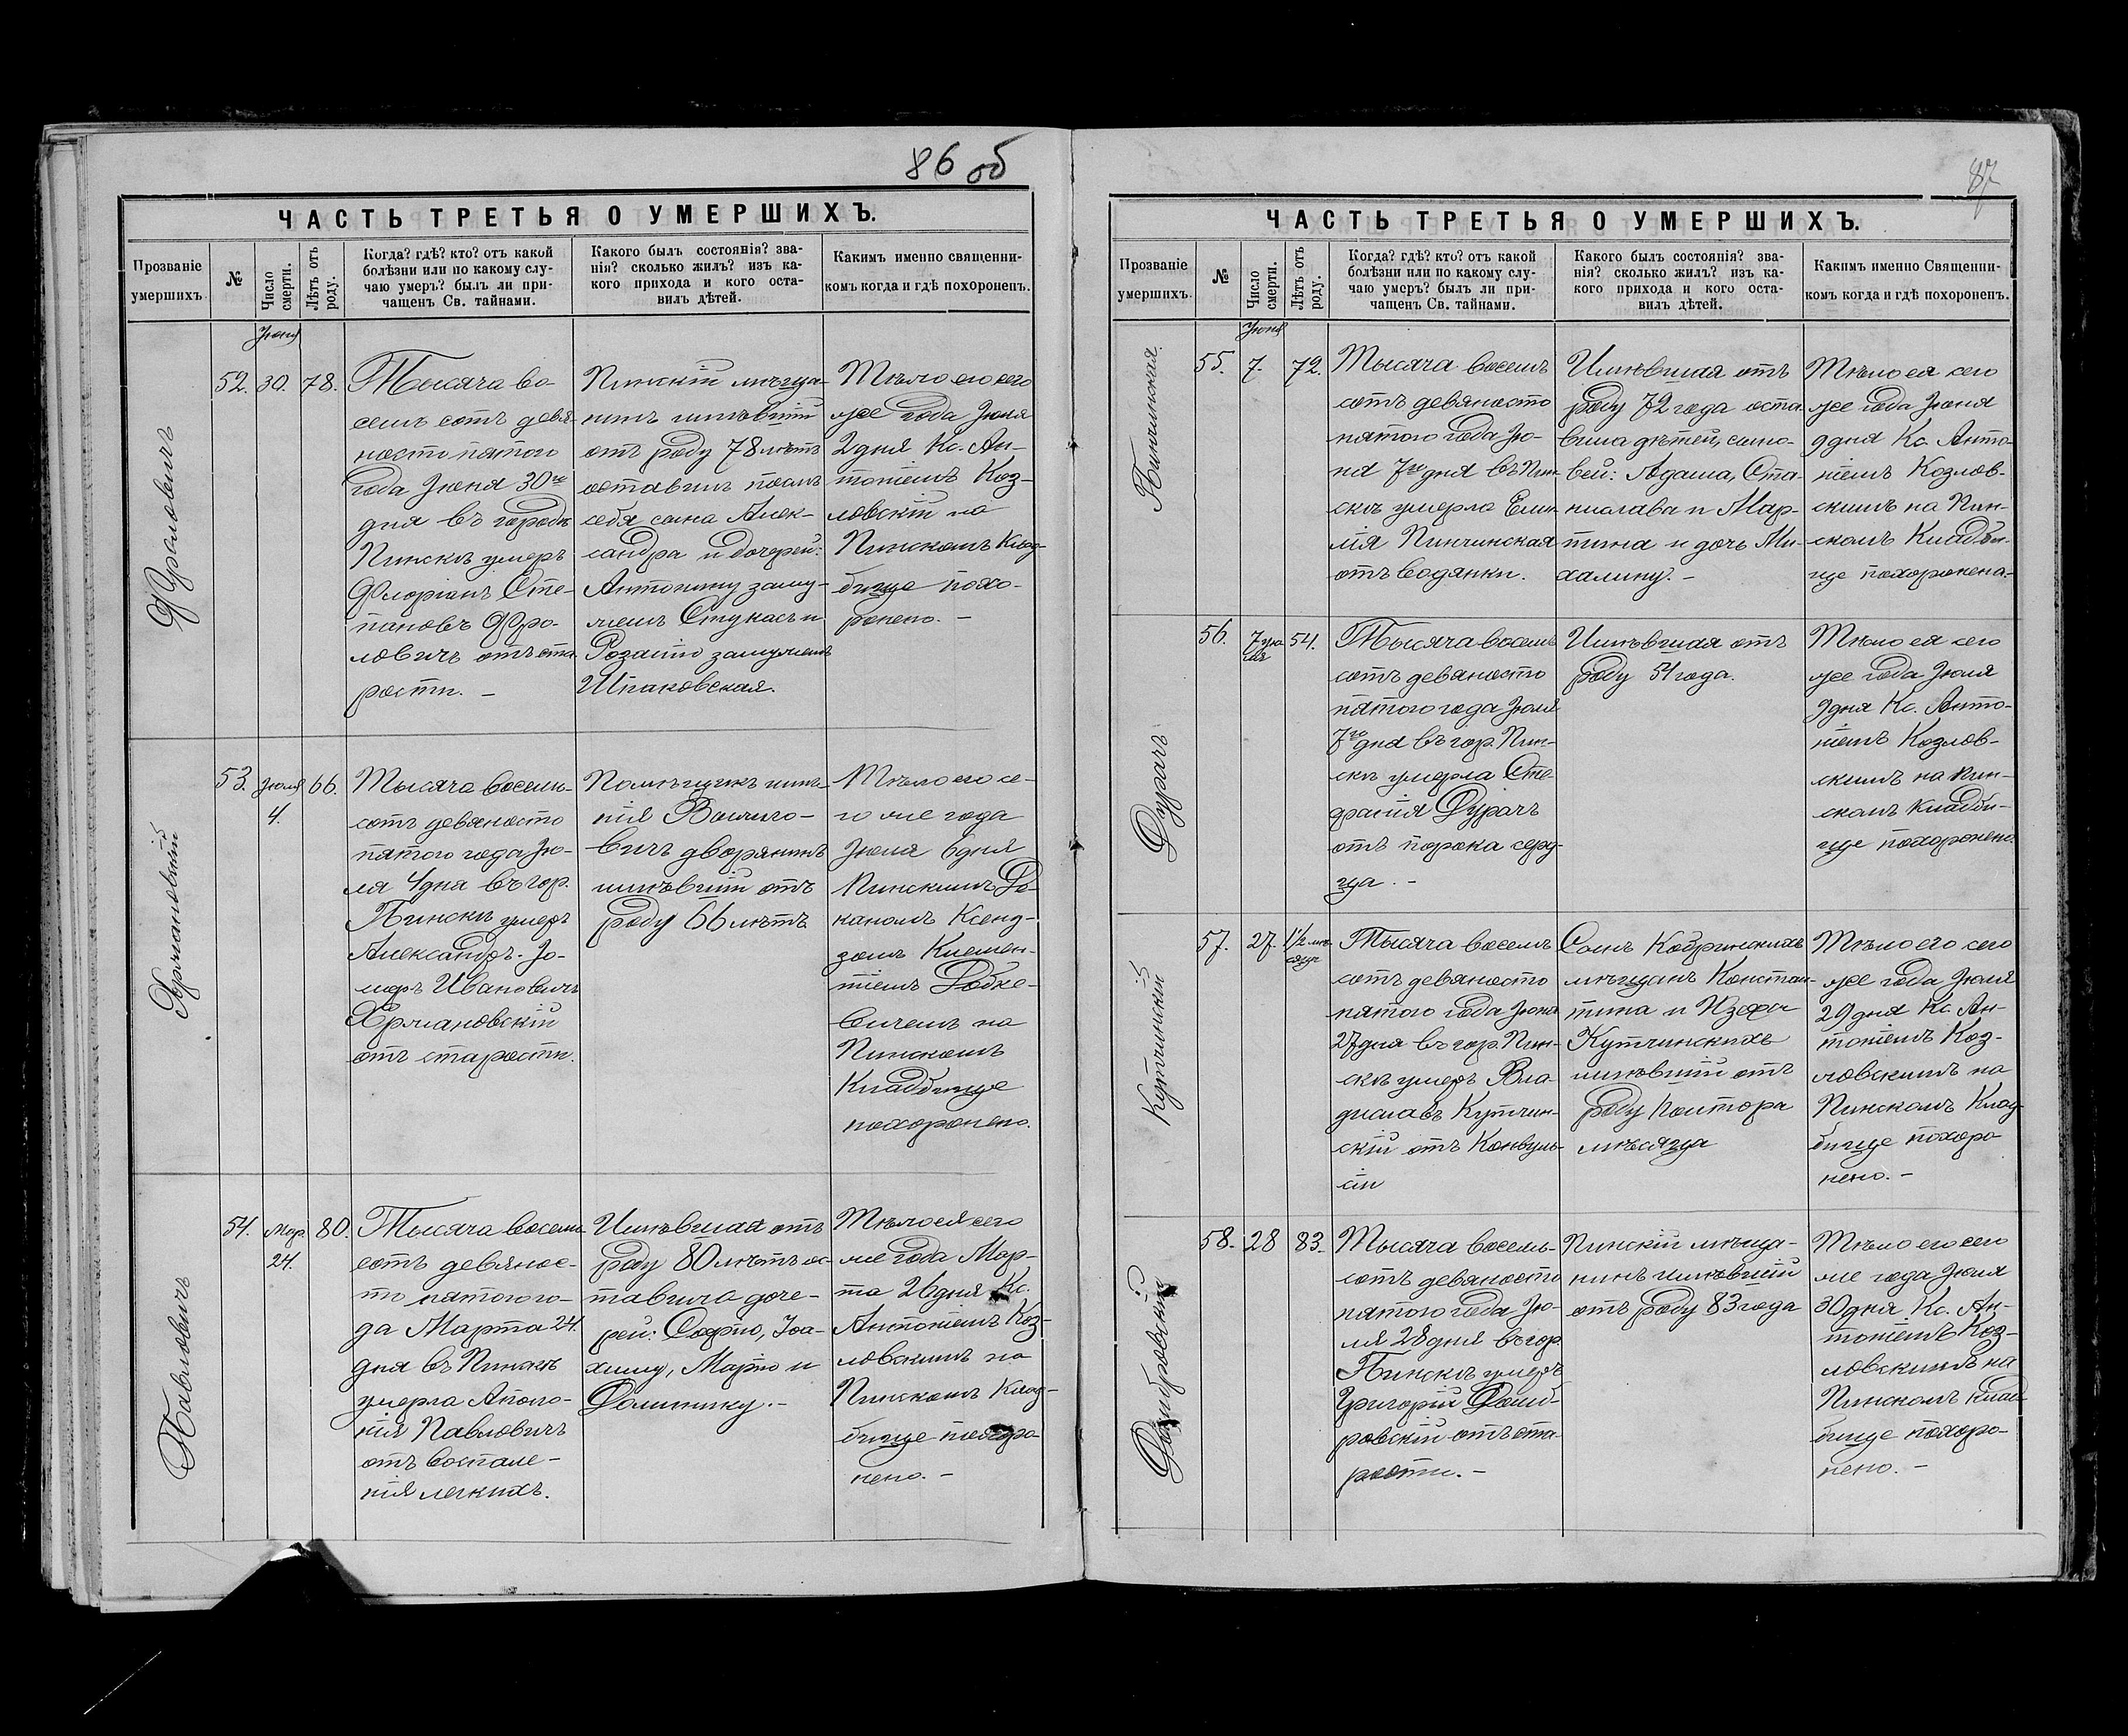 86 об
ЧАСТЬ ТРЕТЬЯ О УМЕРШИХЪ.
Прозваніе
умершихъ.
№
Число
смерти.
Лѣтъ отъ
роду.
Когда? гдѣ? кто? отъ какой
болѣзни или по какому слу-
чаю умеръ? былъ ли при-
чащенъ Св. тайнами.
Какого былъ состоянія? зва-
нія? сколько жилъ? изъ ка-
кого прихода и кого оста-
вилъ дѣтей.
Какимъ именно священни-
комъ когда и гдѣ похороненъ.
Фроловичъ
52.
Іюня
30.
78.
Тысяча во-
семь сотъ девя-
носто пятого
года Іюня 30го
дня въ городѣ
Пинскѣ умеръ
Флоріанъ Сте-
пановъ Фро-
ловичъ отъ ста-
рости. –
Пинскій мѣща-
нинъ имѣвшій
отъ роду 78 лѣтъ
оставилъ послѣ
себя сына Алек-
сандра и дочерей:
Антонину заму-
жемъ Стукасъ и
Розалію замужемъ
Шпаковская.
Тѣло его сего
же года Іюля
2 дня Кс. Ан-
тоніемъ Коз-
ловскій на
Пинскомъ Клад-
бище похо-
ронено. –
53.
Іюля
4.
66.
Тысяча восемь-
сотъ девяносто
пятого года Ію-
ля 4 дня въ гор.
Пинскѣ умеръ
Александръ-Іо-
Ивановичъ
отъ старости.
Помѣщикъ имѣ-
нія
вичъ дворянинъ
имѣвшій отъ
роду 66 лѣтъ
Тѣло его се-
го же года
Іюля 6 дня
Пинскимъ Де-
каномъ Ксенд-
зомъ Клемен-
тіемъ
вичемъ на
Пинскомъ
Кладбище
похоронено.
Павловичъ
54.
Мар.
24.
80.
Тысяча восемь
сотъ девянос-
то пятого го-
да Марта 24.
дня въ Пинскѣ
умерла Аполо-
нія Павловичъ
отъ воспале-
нія легкихъ.
Имѣвшая отъ
роду 80 лѣтъ ос-
тавила доче-
рей: Софію, Іоа-
химу, Марію и
Доминику. –
Тѣло ея сего
же года Мар-
та 26 дня Кс.
Антоніемъ Коз-
ловскимъ на
Пинскомъ Клад-
бище похоро-
нено. –
87
ЧАСТЬ ТРЕТЬЯ О УМЕРШИХЪ.
Прозваніе
умершихъ.
№
Число
смерти.
Лѣтъ отъ
роду.
Когда? гдѣ? кто? отъ какой
болѣзни или по какому слу-
чаю умеръ? былъ ли при-
чащенъ Св. тайнами.
Какого былъ состоянія? зва-
нія? сколько жилъ? изъ ка-
кого прихода и кого оста-
вилъ дѣтей.
Какимъ именно Священни-
комъ когда и гдѣ похороненъ.
Пинчинская.
55.
Іюня
7.
72.
Тысяча восемь
сотъ девяносто
пятого года Ію-
ня 7го дня въ Пин-
скѣ умерла Еми-
лія Пинчинская
отъ водянки.
Имѣвшая отъ
роду 72 года оста-
вила дѣтей, сыно-
вей: Адама, Ста-
нислава и Мар-
тина и дочь Ми-
халину. –
Тѣло ея сего
же года Іюня
9 дня Кс. Анто-
ніемъ Козлов-
скимъ на Пин-
скомъ Кладби-
ще похоронена.
Дурачъ
56.
7 Ію-
ля
54.
Тысяча восемь
сотъ девяносто
пятого года Іюля
7го дня въ гор. Пин-
скѣ умерла Сте-
фанія Дурачъ
отъ порока серд-
ца. –
Имѣвшая отъ
роду 54 года.
Тѣло ея сего
же года Іюля
9 дня Кс. Анто-
ніемъ Козлов-
скимъ на Пин-
скомъ Кладби-
ще похоронено.
Кутчинскій
57.
27.
1½ мѣ-
сяца
Тысяча восемь
сотъ девяносто
пятого года Іюля
27 дня въ гор. Пин-
скѣ умеръ Вла-
диславъ Кутчин-
скій отъ Конвуль-
сіи
Сынъ Кобринскихъ
мѣщанъ Констан-
тина и Юзефы
Кутчинскихъ
имѣвшій отъ
роду полтора
мѣсяца
Тѣло его сего
же года Іюля
29 дня Кс. Ан-
тоніемъ Коз-
ловскимъ на
Пинскомъ Клад-
бище похоро-
нено. –
Домбровскій
58.
28
83.
Тысяча восемь-
сотъ девяносто
пятого года Ію-
ля 28 дня въ гор.
Пинскѣ умеръ
Григорій Домб-
ровскій отъ ста-
рости. –
Пинскій мѣща-
нинъ имѣвшій
отъ роду 83 года
Тѣло его сего
же года Іюля
30 дня Кс. Ан-
тоніемъ Коз-
ловскимъ на
Пинскомъ Клад-
бище похоро-
нено. –